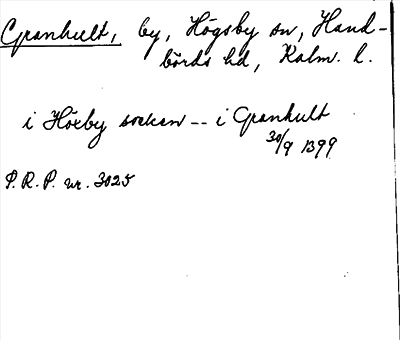 Granhult, by, Högsby sn, Hand-
börds hd, Kalm. l.
i Höxby socken -- i Granhult
30/9 1399
P.R.P. nr. 3025